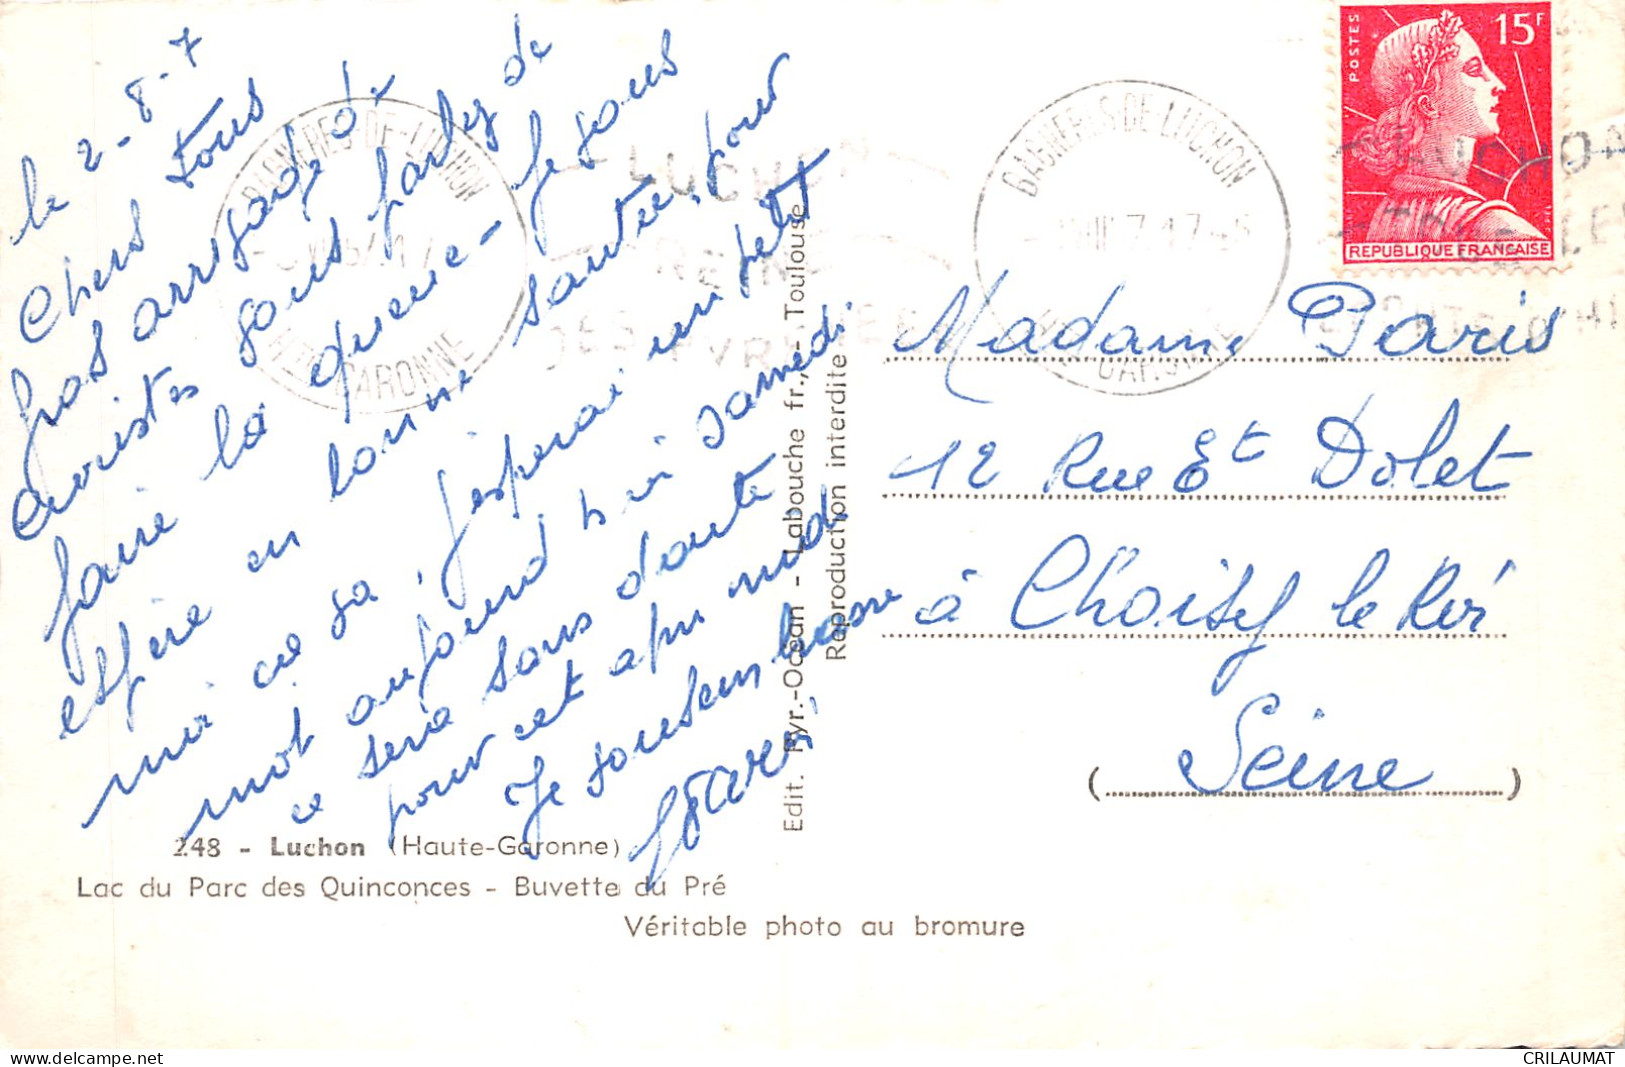 le 2-8-7
Chers tous
pas arrivage de
curistes sans parler de
faire la queue - Je vous
espère en bonne santée, pour
moi ça va, j'esperai un petit
mot aujourd'hui samedi.
ce sera sans doute
pour cet apri midi
Je
POSTES
15F
REPUBLIQUE FRANÇAISE
BAGNERES-DE-LUCHON
HTE GARONNE
LUCHON
REINE
DES PYRENEES
BAGNERES DE-LUCHON
LUCHON
Madame Paris
12 Rue Et Dolet
à Choisy le Roi
(Seine)
Edit. Pyr.-Océan - Labouche fr., - Toulouse
Reproduction interdite
248 - Luchon (Haute-Garonne)
Lac du Parc des Quinconces - Buvette du Pré
Véritable photo au bromure
delcampe.net
CRILAUMAT